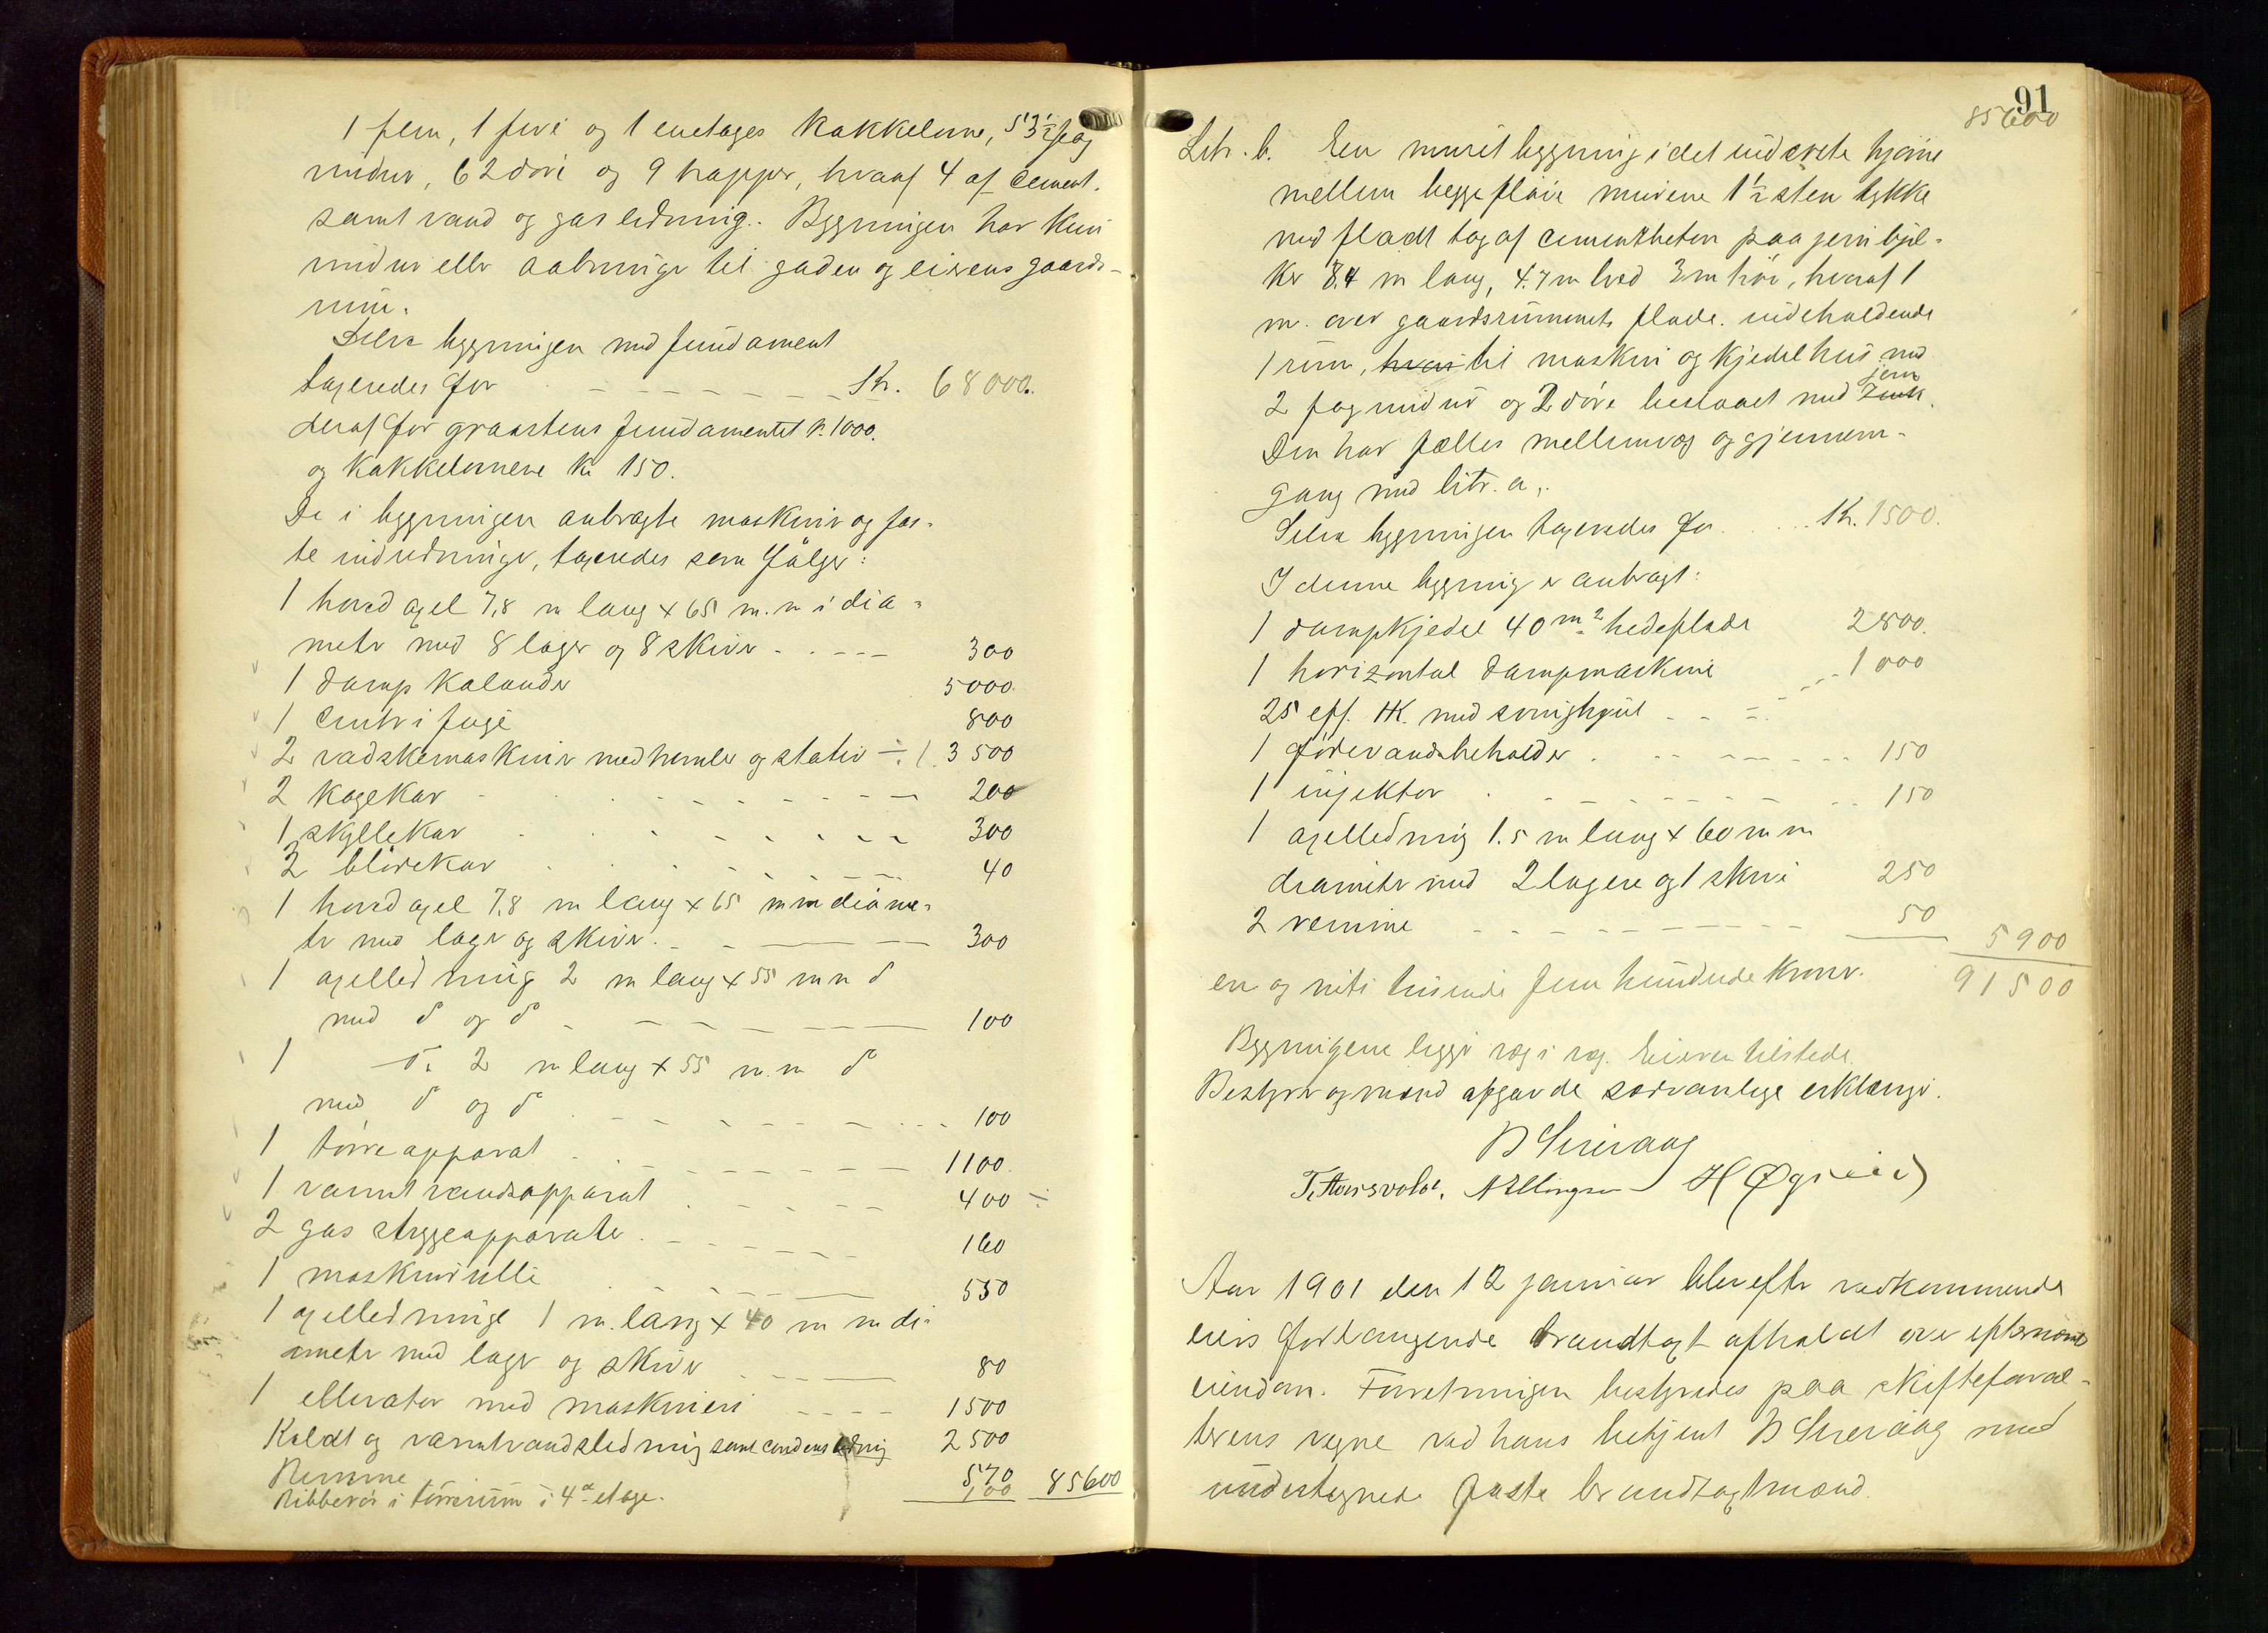 1 fem, 1 fire og 1 enetages kakkelovne, 53½ fag
vinduer, 62 døre og 9 trapper, hvoraf 4 af cement.
samt vand og gasledning. Bygningen har kun
vinduer eller aabninger til gaden og eierens gaards-
rum.
Selve bygningen med fundament
taxeredes for - - - - - - Kr. 68000.
deraf for graastens fundamentet kr. 1000.
og kakkelovnene kr 150.
De i bygningen anbragte maskiner og fas-
te indredninger, taxeredes som følger:
1 hovedaxel 7,8 m lang x 65 m.m i dia-
meter med 8 lager og 8 skiver - - - - 300
1 damp kalander 5000.
1 Centrifuge 800
2 vadskemaskiner med remler og stativ ÷ 3500
2 kogekar - - - - - - 200
1 skyllekar - - - - - 300
2 bløtekar - - - - - 40
1 hovedaxel 7,8 m lang x 65 mm diame-
ter med lager og skiver. - - - 300
1 axelledning 2 m lang x 55 mm do
med do og do - - - - - 100
1 do 2 m lang x 55 m.m do
med do og do - - - - - 100
1 tørreapparat - - - - - 1100.
1 varmtvandsapparat - - - - 400 ÷
2 gas strygeapparater - - - - 160
1 maskinrulle - - - - 550
1 axelledninge 1 m. lang x 40 m m di-
ameter med lager og skiver - - - 80
1 ellevator med maskineri - - - - 1500
Koldt og varmtvandsledning samt condensledning 2500
Remme 570
Ribberør i tørrerum i 4de etage. 100 85600
91
85600
Litr. b. En muret bygning i det inderste hjørne
mellem begge fløie murene 1½ sten tykke
med fladt tag af cementbeton paa jernbjel-
ker 8.4 m lang, 4.7 m bred 3 m høi, hvoraf 1
m. over gaardsrummets flade. indeholdende
1 rum, hvor til maskin og kjedelhus med
2 fag vinduer og 2 døre beslaaet med zink jern.
Den har fælles mellemvæg og gjennem-
gang med litr. a.
Selve bygningen taxeredes for . . . . Kr. 1500.
I denne bygning er anbragt:
1 dampkjedel 40 m2 hedeflade 2800.
1 horizontal dampmaskine - - - 1000
25 eff. HK. med svinghjul - - -
1 fødevandsbeholder - - - - 150
1 injektor - - - - - - 150
1 axelledning 1.5 m lang x 60 m m
diameter med 2 lagere og 1 skive 250
2 remme - - - - - - 50 5900
en og niti tusinde fem hundrede kroner. 91500
Bygningene ligger væg i væg. Eieren tilstede.
Bestyrer og mænd afgav de sedvanlige erklæringer.
B Sirevaag
T. Hausvold. N Ellingsen H Øgreid
Aar 1901 den 12 januar blev efter vedkommende
eiers forlangende brandtaxt afholdt over efternævnte
eiendom. Forretningen bestyredes paa skifteforval-
terens vegne ved hans betjent B Sirevaag med
undertegnede faste brandtaxtmænd.